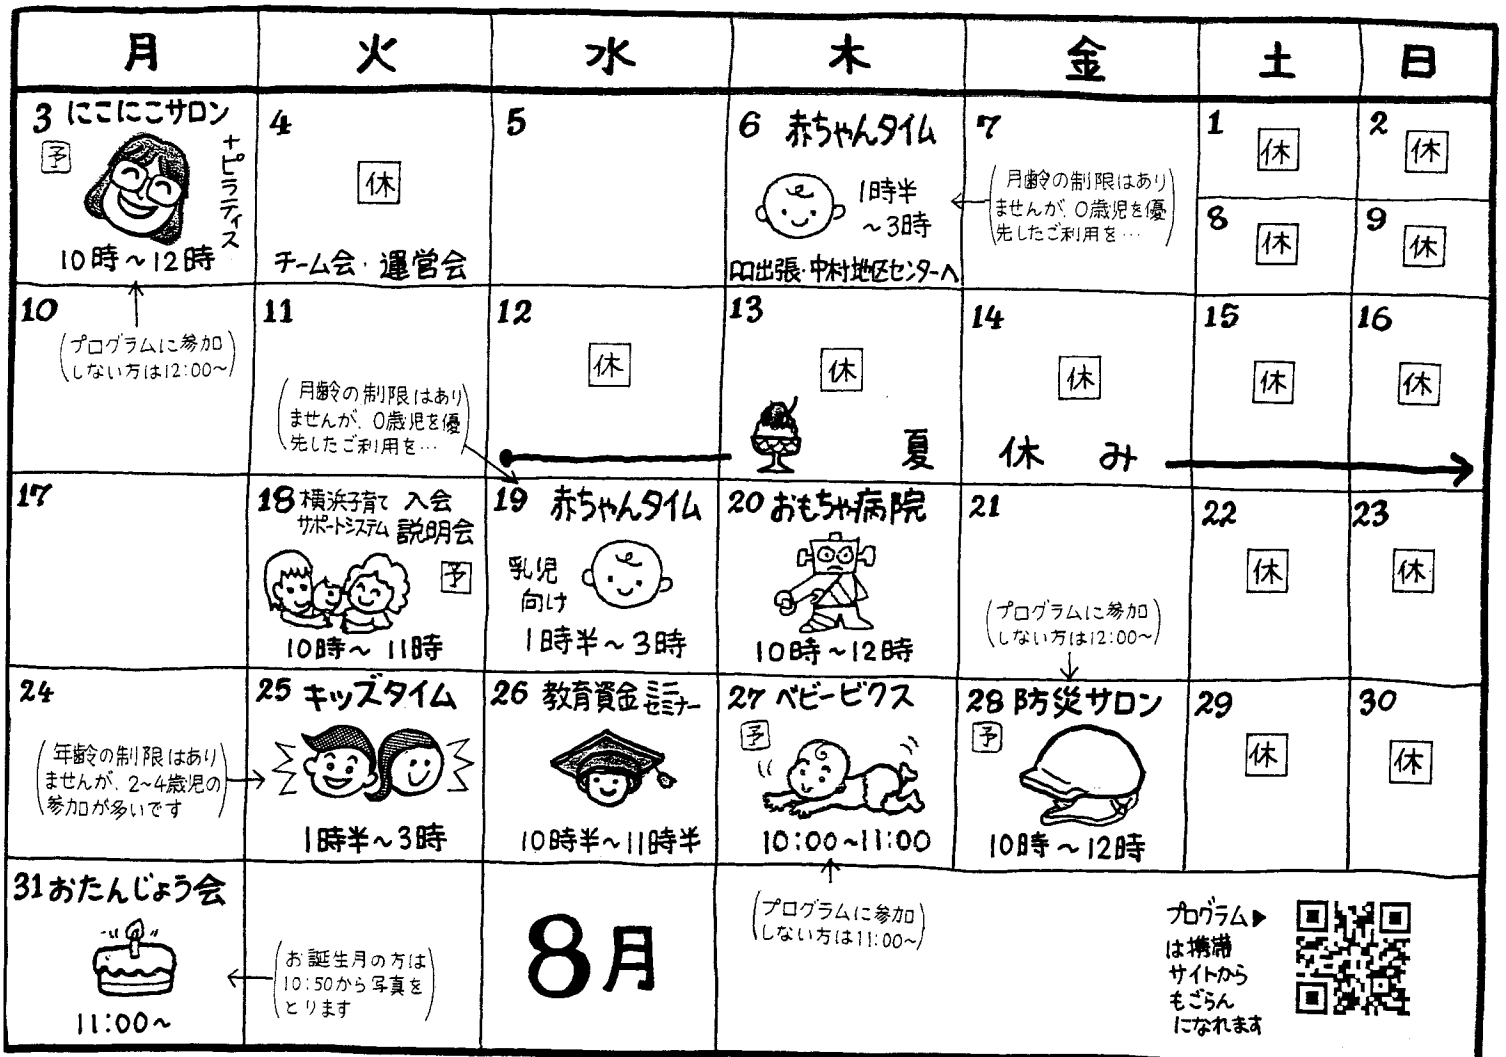 月 火 水 木 金 土 日
3 にこにこサロン
予
+ピラティス
10時～12時
4
休
チーム会・運営会
5
6 赤ちゃんタイム
1時半
～3時
出張・中村地区センターへ
7
月齢の制限はあり
ませんが、0歳児を優
先したご利用を…
1
休
2
休
8
休
9
休
10
プログラムに参加
しない方は12:00～
11
月齢の制限はあり
ませんが、0歳児を優
先したご利用を…
12
休
13
休
14
休
15
休
16
休
夏休み
17
18 横浜子育て 入会
サポートシステム 説明会
予
10時～11時
19 赤ちゃんタイム
乳児
向け
1時半～3時
20 おもちゃ病院
10時～12時
21
プログラムに参加
しない方は12:00～
22
休
23
休
24
年齢の制限はあり
ませんが、2~4歳児の
参加が多いです
25 キッズタイム
1時半～3時
26 教育資金 ミニ
セミナー
10時半～11時半
27 ベビービクス
予
10:00~11:00
28 防災サロン
予
10時～12時
29
休
30
休
31 おたんじょう会
11:00～
お誕生月の方は
10:50から写真を
とります
8月
プログラムに参加
しない方は11:00～
プログラム▶
は携帯
サイトから
もごらん
になれます